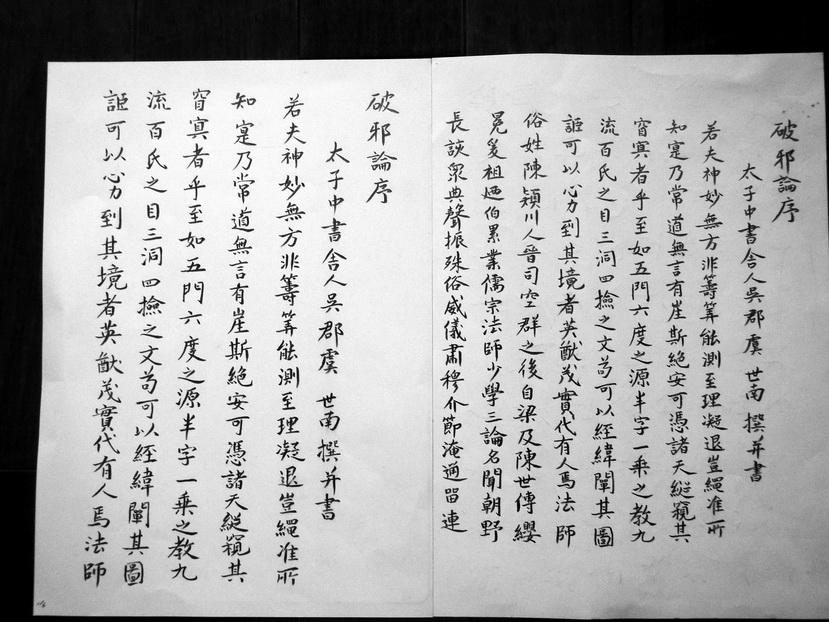 破邪論序
太子中書舍人吳郡虞世南撰并書
若夫神妙無方非籌筭能測至理凝退豈繩准所
知寔乃常道無言有崖斯絕安可憑諸天縱窺其
窅寞者乎至如五門六度之源半字一乘之教九
流百氏之目三洞四撿之文苟可以經緯闡其圖
詎可以心力到其境者英猷茂實代有人焉法師
俗姓陳潁川人晉司空群之後自梁及陳世傳纓
冕爰祖迺伯累業儒宗法師少學三論名聞朝野
長談衆典聲振殊俗威儀肅穆介節淹通留連
破邪論序
太子中書舍人吳郡虞世南撰并書
若夫神妙無方非籌筭能測至理凝退豈繩准所
知寔乃常道無言有崖斯絕安可憑諸天縱窺其
窅寞者乎至如五門六度之源半字一乘之教九
流百氏之目三洞四撿之文苟可以經緯闡其圖
詎可以心力到其境者英猷茂實代有人焉法師